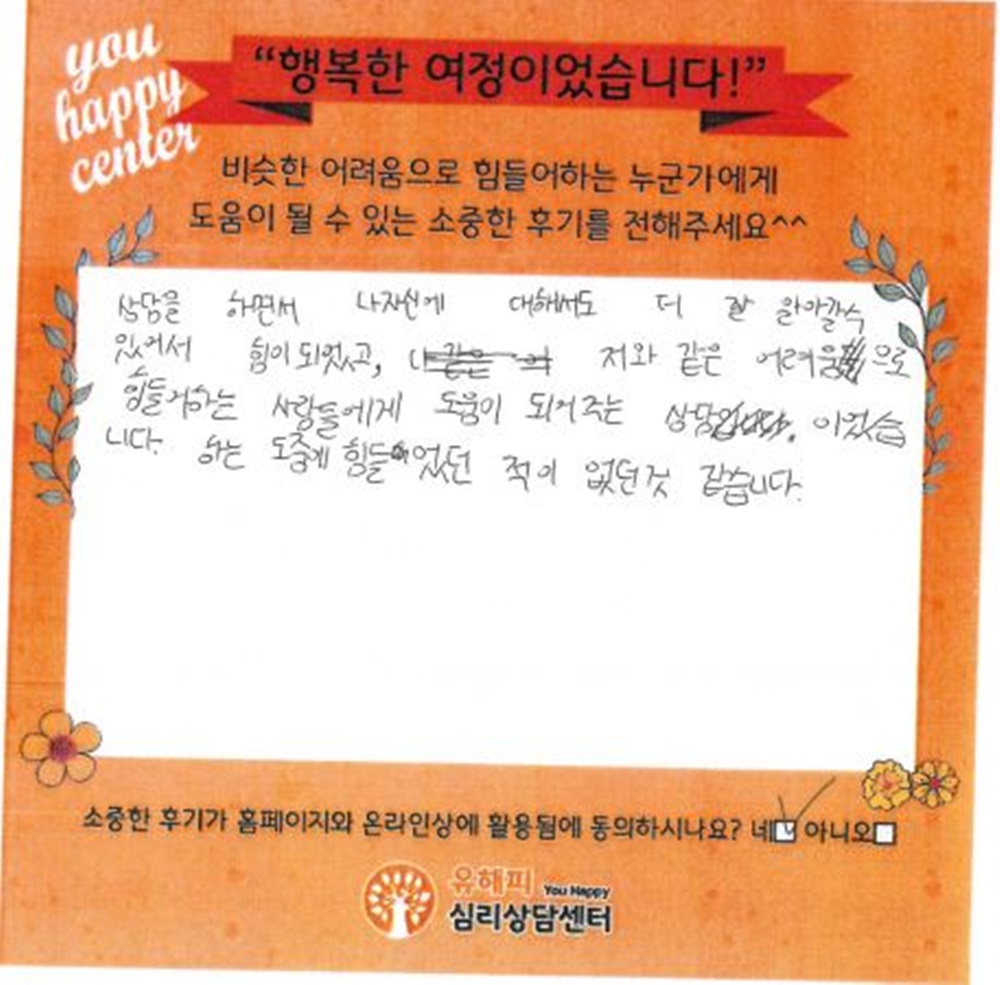 you
happy
center
“행복한 여정이었습니다!”
비슷한 어려움으로 힘들어하는 누군가에게
도움이 될 수 있는 소중한 후기를 전해주세요^^
상담을 하면서 나자신에 대해서도 더 잘 알아갈수
있어서 힘이 되었고, 저와 같은 어려움으로
힘들어하는 사람들에게 도움이 되어주는 상담이었습
니다. 하는 도중에 힘들었던 적이 없던것 같습니다.
소중한 후기가 홈페이지와 온라인상에 활용됨에 동의하시나요? 네 아니오
유해피 You Happy
심리상담센터